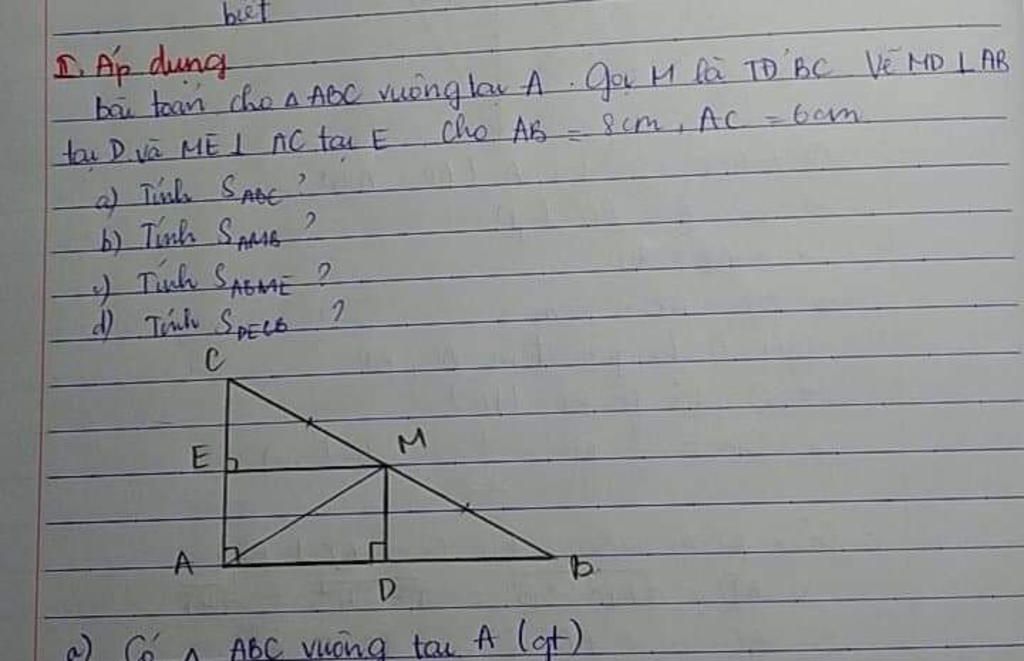 biết
I. Áp dụng
bài toán cho △ ABC vuông tại A. Gọi M là TĐ BC Vẽ MD ⊥ AB
tại D và ME ⊥ AC tại E Cho AB = 8cm, AC = 6cm
a) Tính SABC ?
b) Tính SAMB ?
c) Tính SADME ?
d) Tính SDECB ?
C
E
M
A
D
B
a) Có △ ABC vuông tại A (gt)